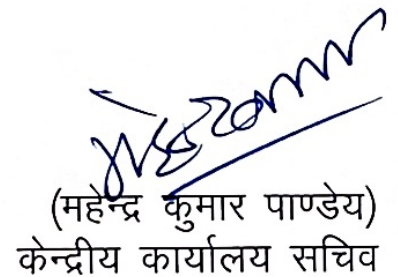 (महेन्द्र कुमार पाण्डेय)
केन्द्रीय कार्यालय सचिव